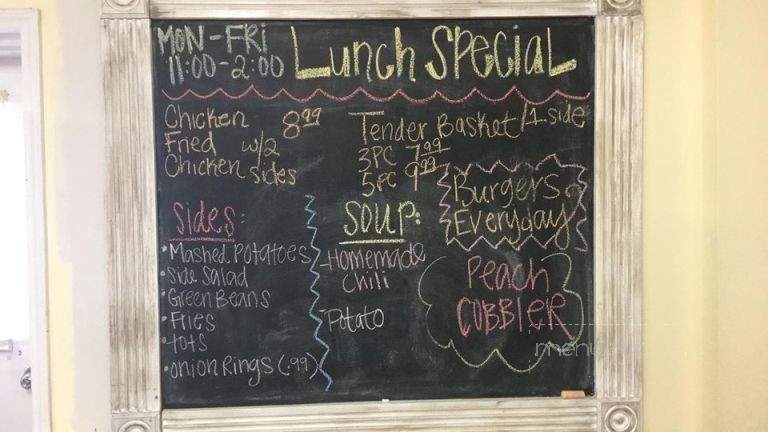 MON-FRI
11:00-2:00
Lunch SPECIAL
Chicken 8.99
Fried w/2
Chicken sides
Tender Basket/1 side
3PC 7.99
5PC 9.99
Burgers
Everyday
Sides:
• Mashed Potatoes
• Side Salad
• Green Beans
• Fries
• Tots
• Onion Rings (.99)
SOUP:
-Homemade
Chili
-Potato
PEACH
COBBLER
menu